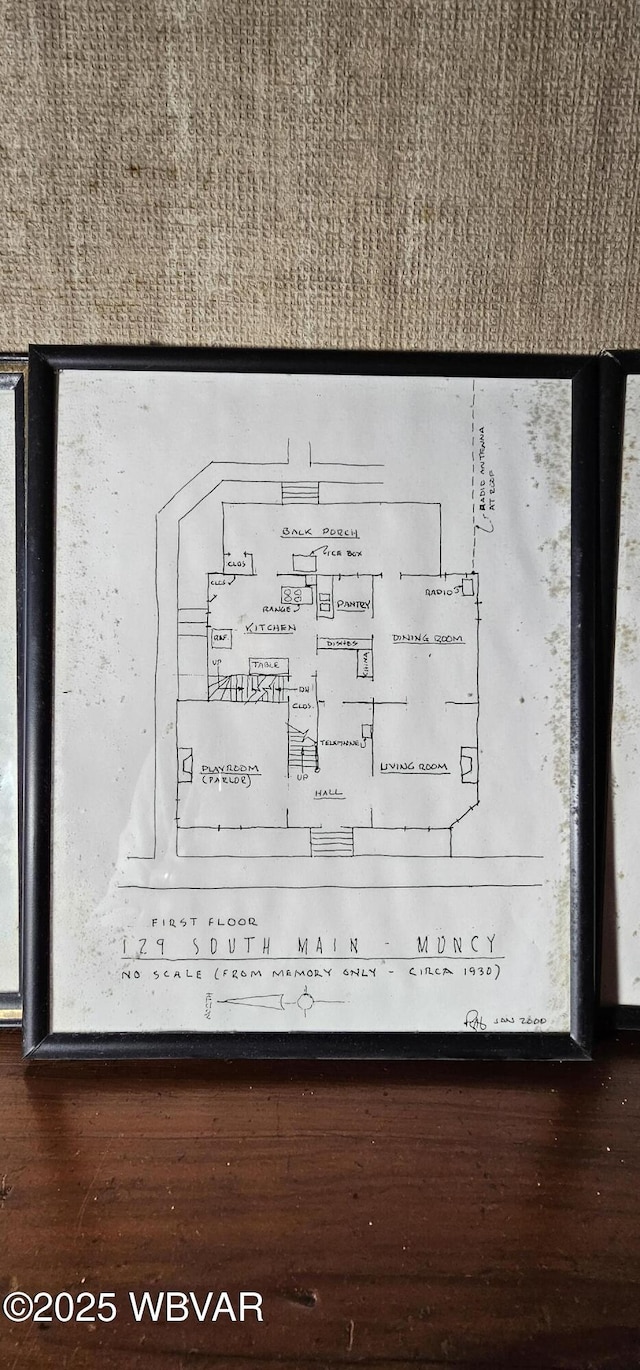 RADIO ANTENNA
AT ROOF
BACK PORCH
ICE BOX
CLOS
CLOS
RANGE
PANTRY
RADIO
KITCHEN
REF.
DISHES
DINING ROOM
CHINA
UP
TABLE
DN
CLOS.
TELEPHONE
PLAYROOM
(PARLOR)
UP
LIVING ROOM
HALL
FIRST FLOOR
129 SOUTH MAIN - MUNCY
NO SCALE (FROM MEMORY ONLY - CIRCA 1930)
NORTH
JAN 2000
©2025 WBVAR